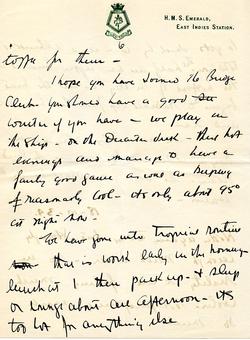 H.M.S. EMERALD,
EAST INDIES STATION.
6
for them –
I hope you have joined the Bridge
Club – you should have a good
winter if you have – we play in
the Ship – on the Quarter deck – these hot
evenings and manage to have a
fairly good game as one is
reasonably cool – its only about 95°
at night now
We have gone into tropical routine
that is work early in the morning
lunch at 1 then pack up – & sleep
or lounge about all afternoon – its
too hot for anything else